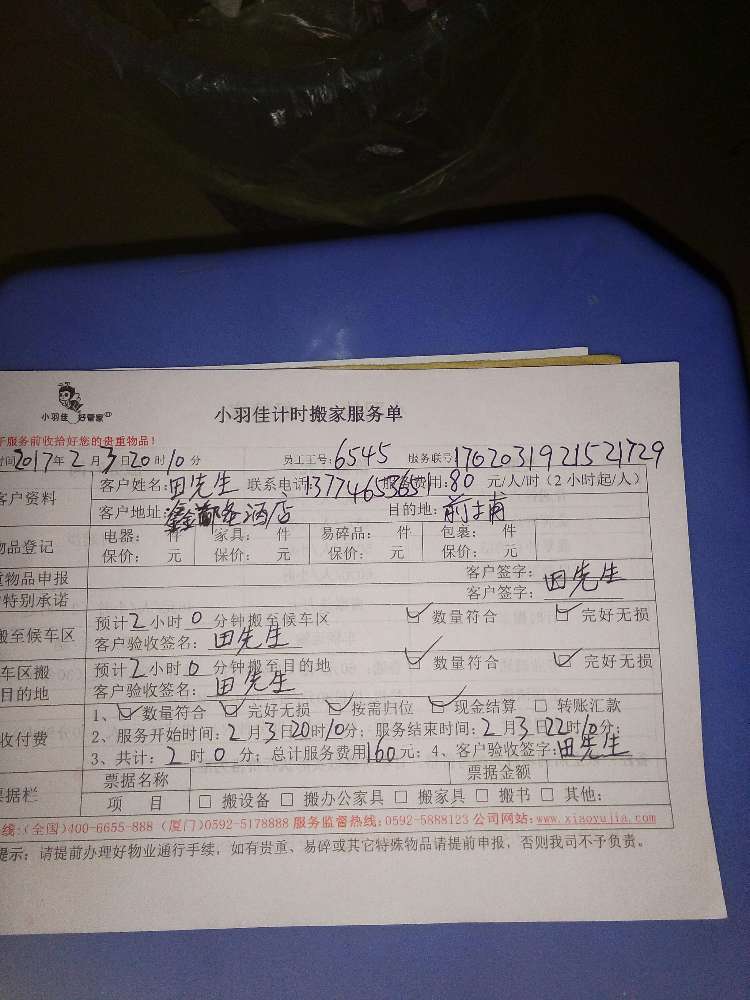 小羽佳 好管家
小羽佳计时搬家服务单
服务前收拾好您的贵重物品!
时间2017年2月3日20时10分 员工工号:6545 服务联号:1702031921521729
客户资料 客户姓名:田先生 联系电话:13774653651 服务费用:80 元/人/时(2小时起/人)
客户地址: 酒店 目的地:前埔
物品登记 电器: 件 家具: 件 易碎品: 件 包裹: 件
保价: 元 保价: 元 保价: 元 保价: 元
重物品申报 客户签字:田先生
特别承诺 客户签字:
搬至候车区 预计2小时0分钟搬至候车区 ☑数量符合 ☑完好无损
客户验收签名:田先生
车区搬 预计2小时0分钟搬至目的地 ☑数量符合 ☑完好无损
目的地 客户验收签名:田先生
1、☑数量符合 ☑完好无损 ☑按需归位 ☑现金结算 □转账汇款
收付费 2、服务开始时间:2月3日20时10分;服务结束时间:2月3日22时10分;
3、共计:2时0分;总计服务费用160元;4、客户验收签字:田先生
票据栏 票据名称 票据金额
项 目 □搬设备 □搬办公家具 □搬家具 □搬书 □其他:
线:(全国)400-6655-888 (厦门)0592-5178888 服务监督热线:0592-5888123 公司网站:www.xiaoyujia.com
提示:请提前办理好物业通行手续,如有贵重、易碎或其它特殊物品请提前申报,否则我司不予负责。